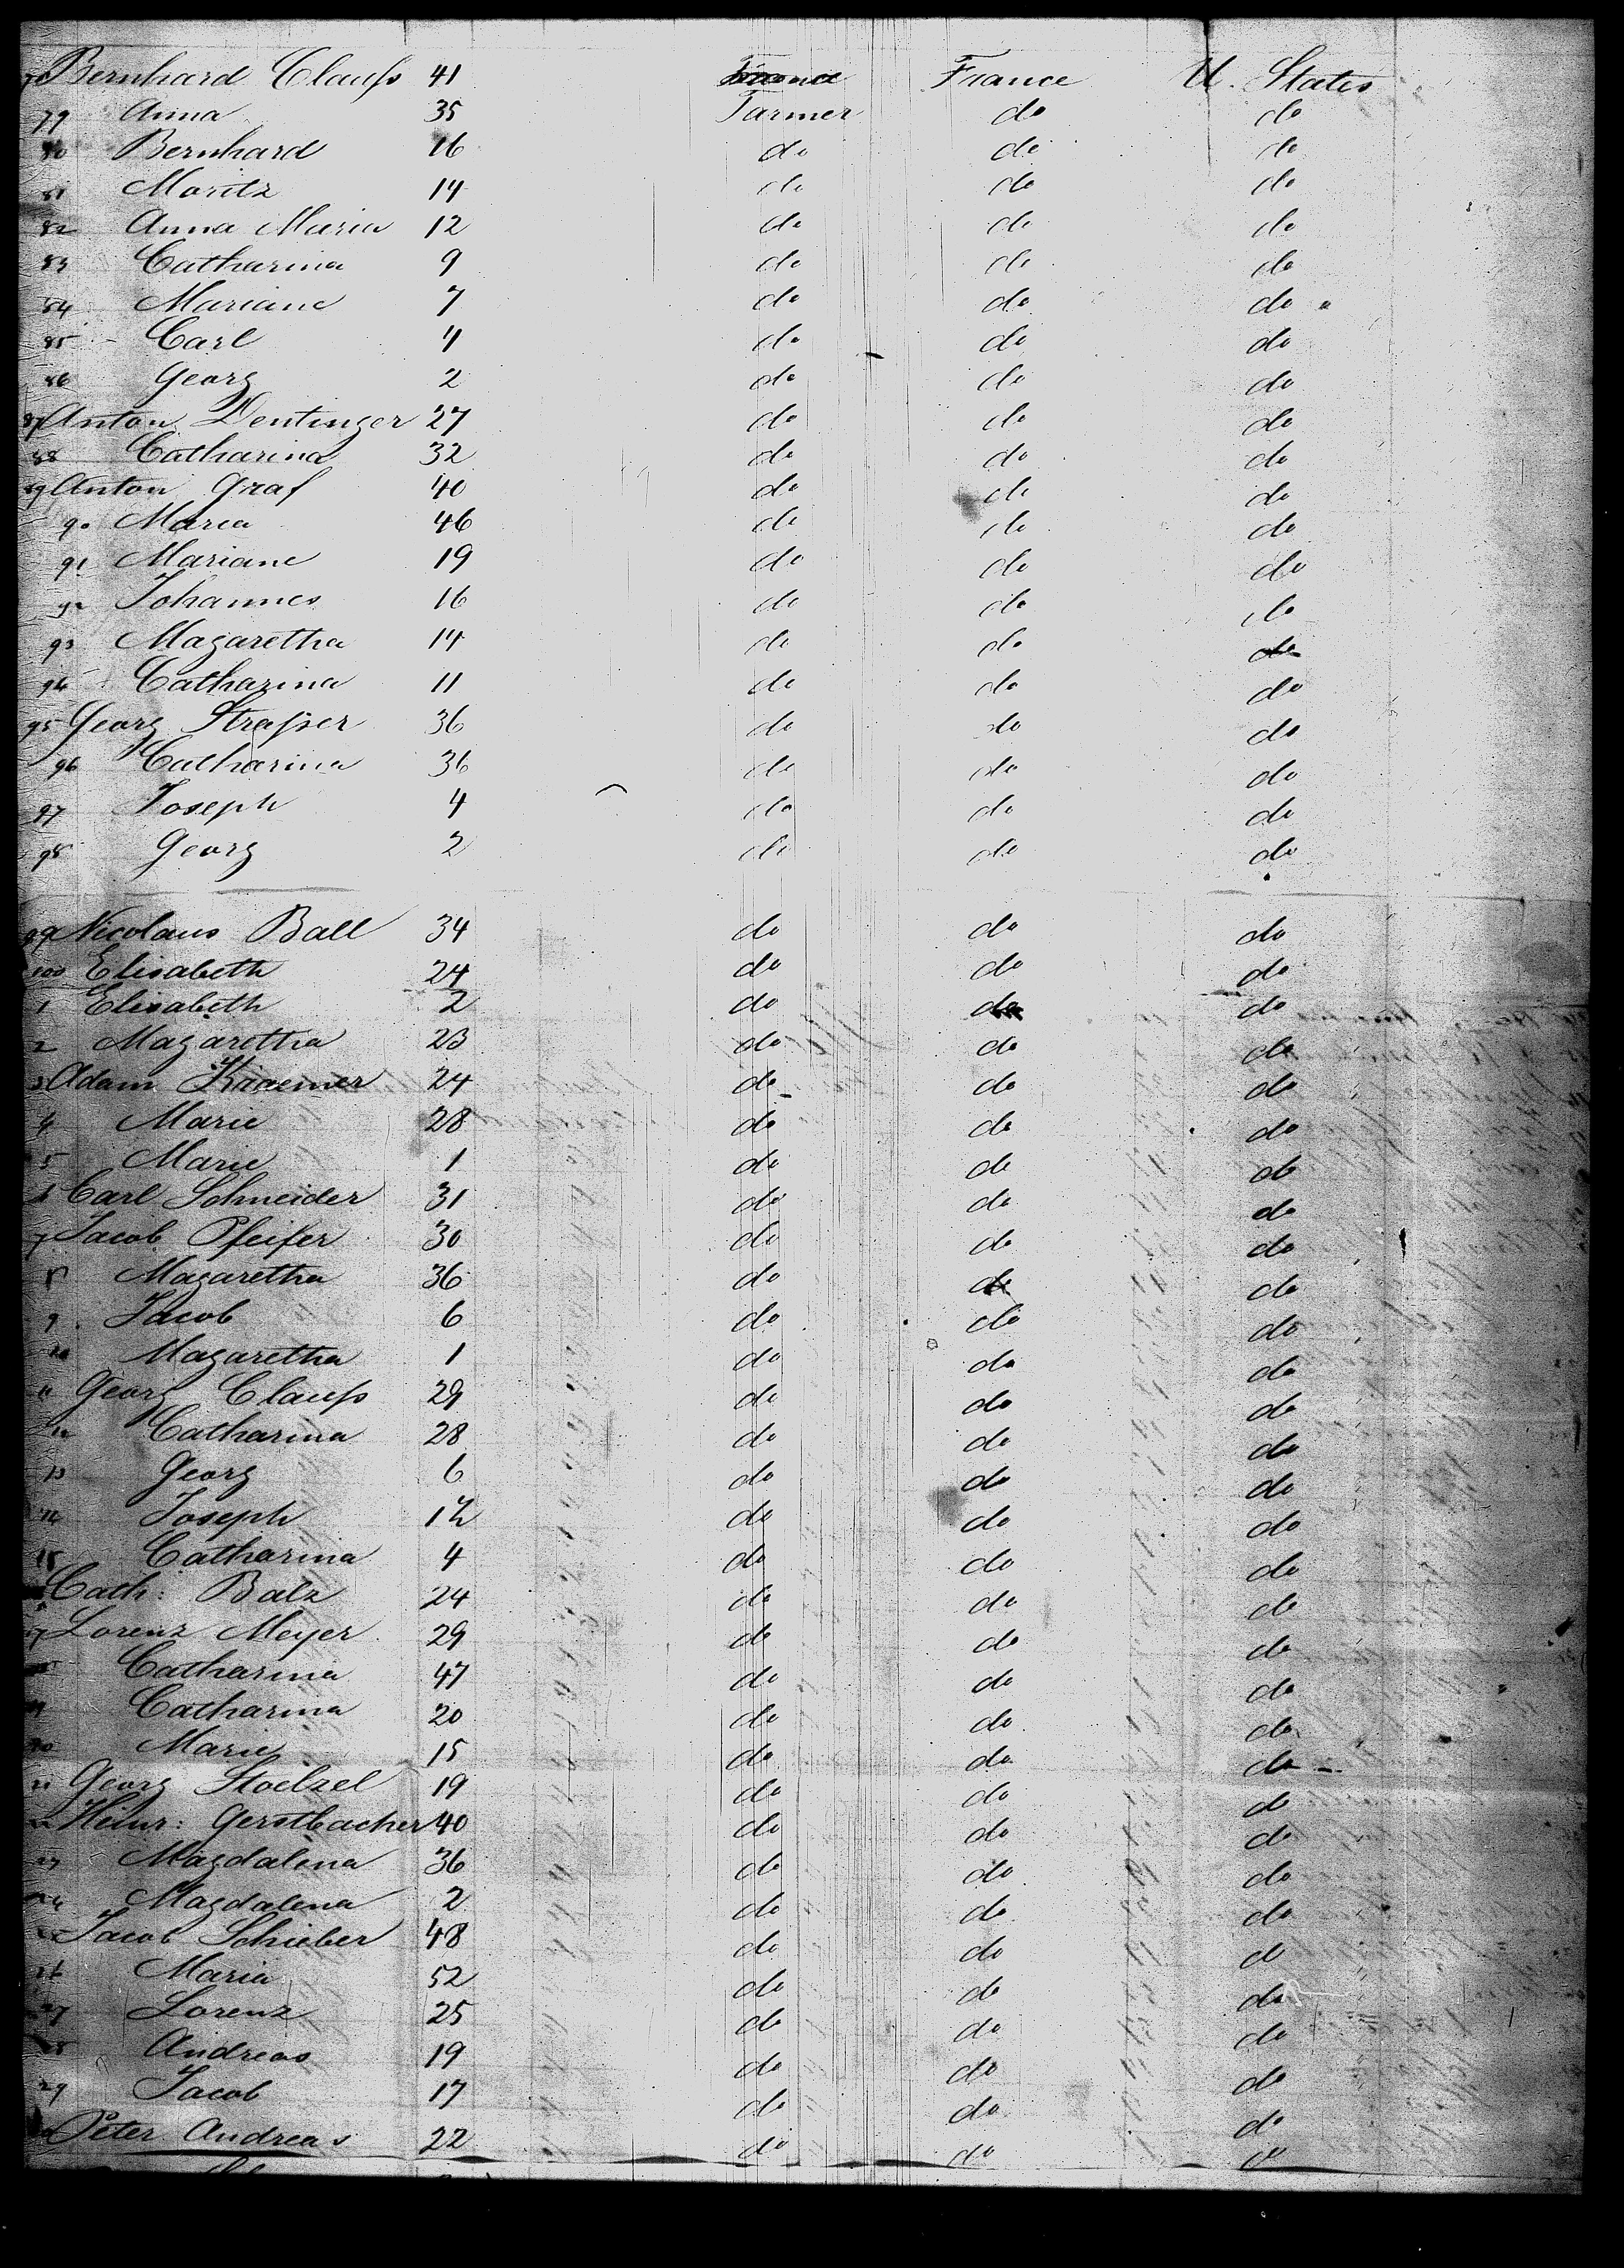 Bernhard Clauss 41 France U. States
79 Anna 35 Farmer do do
80 Bernhard 16 do do do
81 Moritz 14 do do do
82 Anna Maria 12 do do do
83 Catharina 9 do do do
84 Mariane 7 do do do
85 Carl 4 do do do
86 Georg 2 do do do
87 Anton Dentinger 27 do do do
88 Catharina 32 do do do
89 Anton Graf 40 do do do
90 Maria 46 do do do
91 Mariane 19 do do do
92 Johannes 16 do do do
93 Magaretha 14 do do do
94 Catharina 11 do do do
95 Georg Strasser 36 do do do
96 Catharina 36 do do do
97 Joseph 4 do do do
98 Georg 2 do do do
99 Nicolaus Ball 34 do do do
100 Elisabeth 24 do do do
1 Elisabeth 2 do do do
2 Magaretha 23 do do do
3 Adam Kraemer 24 do do do
4 Marie 28 do do do
5 Marie 1 do do do
6 Carl Schneider 31 do do do
7 Jacob Pfeifer 30 do do do
8 Magaretha 36 do do do
9 Jacob 6 do do do
10 Magaretha 1 do do do
11 Georg Clauss 29 do do do
12 Catharina 28 do do do
13 Georg 6 do do do
14 Joseph do do do
15 Catharina 4 do do do
Cath: Balz 24 do do do
17 Lorenz Meyer 29 do do do
Catharina 47 do do do
Catharina 20 do do do
20 Marie 15 do do do
21 Georg Stoelzel 19 do do do
22 Heinr: Gerstbacher 40 do do do
23 Magdalena 36 do do do
24 Magdalena 2 do do do
Jacob Schieber 48 do do do
26 Maria 52 do do do
27 Lorenz 25 do do do
28 Andreas 19 do do do
29 Jacob 17 do do do
Peter Andreas 22 do do do